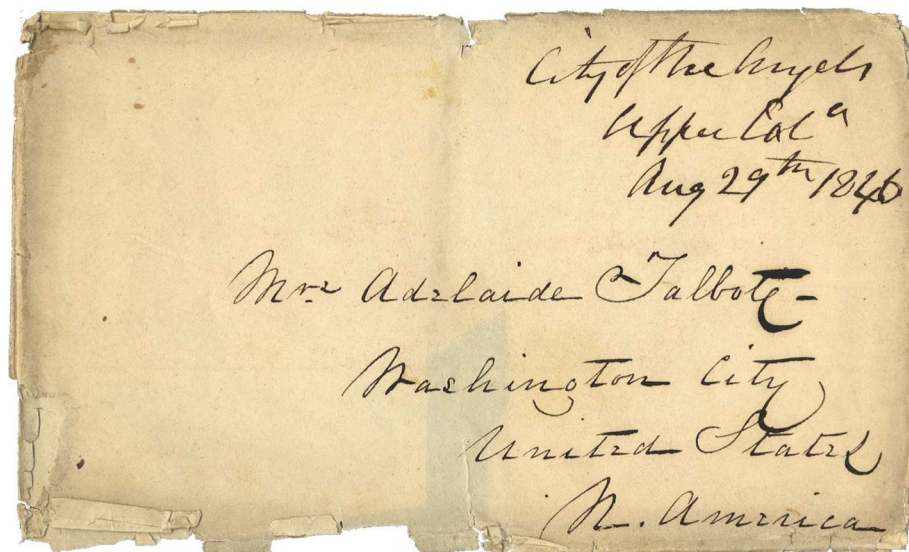 City of the Angels
Upper Cala
Aug 29th 1846
Mrs Adelaide Talbot-
Washington City
United States
N. America